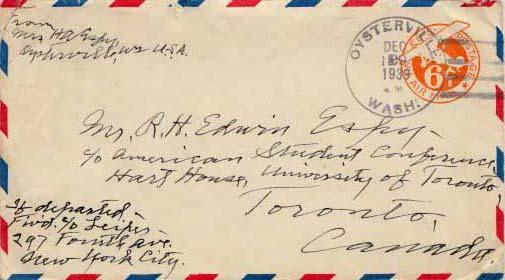 From
Mrs HA Espy
Oysterville, Wn U.S.A.
OYSTERVILLE
DEC
1938
WASH.
POSTAGE
6¢
AIR MAIL
Mr. R.H. Edwin Espy-
c/o American Student Conference,
Hart House, University of Toronto,
Toronto,
Canada.
If departed-
Fwd. c/o Leiper
297 Fourth Ave.
New York City.